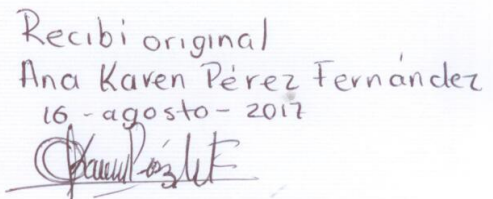 Recibi original
Ana Karen Pérez Fernández
16 - agosto - 2017